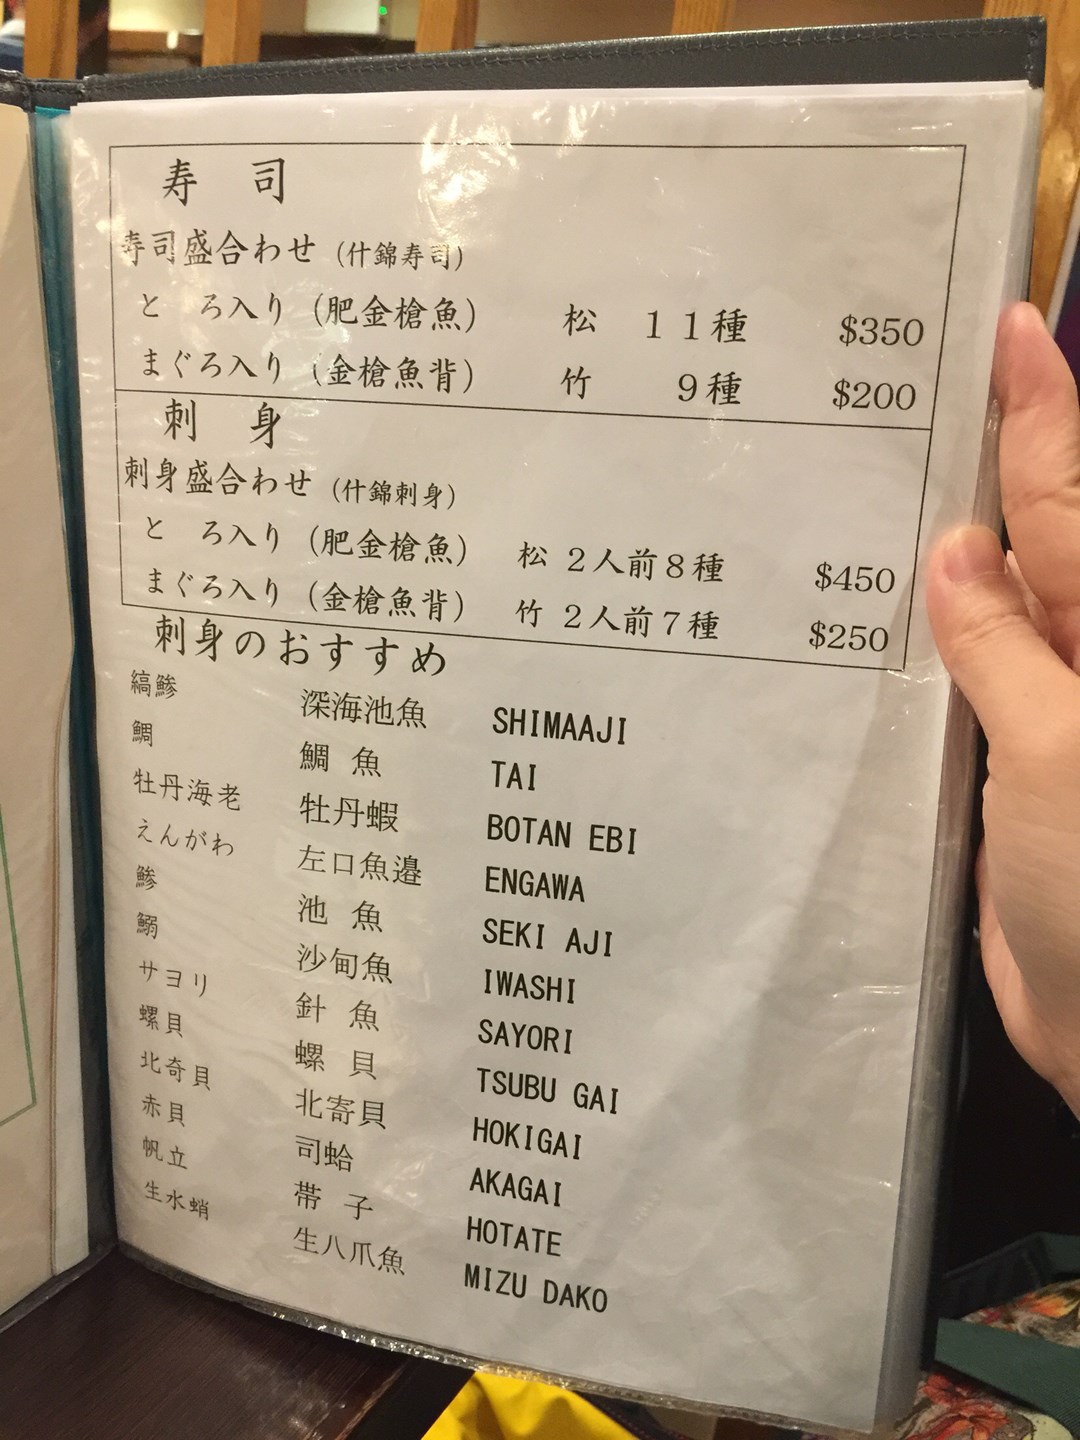 寿 司
寿司盛合わせ (什錦寿司)
と ろ入り (肥金槍魚) 松 11種 $350
まぐろ入り (金槍魚背) 竹 9種 $200
刺 身
刺身盛合わせ (什錦刺身)
と ろ入り (肥金槍魚) 松 2人前8種 $450
まぐろ入り (金槍魚背) 竹 2人前7種 $250
刺身のおすすめ
縞鯵 深海池魚 SHIMAAJI
鯛 鯛 魚 TAI
牡丹海老 牡丹蝦 BOTAN EBI
えんがわ 左口魚邉 ENGAWA
鯵 池 魚 SEKI AJI
鰯 沙甸魚 IWASHI
サヨリ 針 魚 SAYORI
螺貝 螺 貝 TSUBU GAI
北奇貝 北寄貝 HOKIGAI
赤貝 司蛤 AKAGAI
帆立 帯 子 HOTATE
生水蛸 生八爪魚 MIZU DAKO